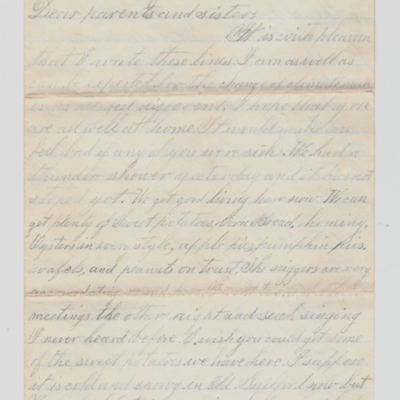 Dear parents and sisters
It is with pleasure
that I write these lines. I am as well as
can be expected for the change of climate
I hope that you
are all well at home. It would make me
feel bad if any of you were sick. We had a
thunder shower yesterday and it has not
stoped yet. We get good living here now. We can
get plenty of sweet potatoes, corn bread, homing,
Oysters in every style, apple pies, pumpkin pies,
wafels, and peanuts on trust. The niggers are very
accomodating
meetings the other night and such singing
I never heard before. I wish you could get some
of the sweet potatoes we have here. I suppose
it is cold and snowy in Old Buxford now but